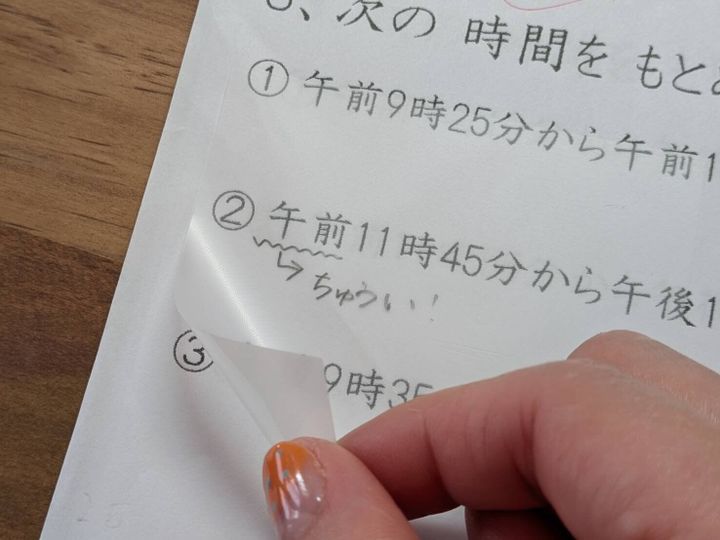 次の 時間を もと
① 午前9時25分から午前1
② 午前11時45分から午後1
↳ちゅうい!
③ 9時35